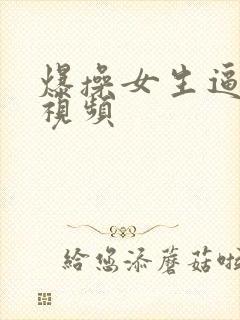 爆操女生逼
視頻
給您添蘑菇啦